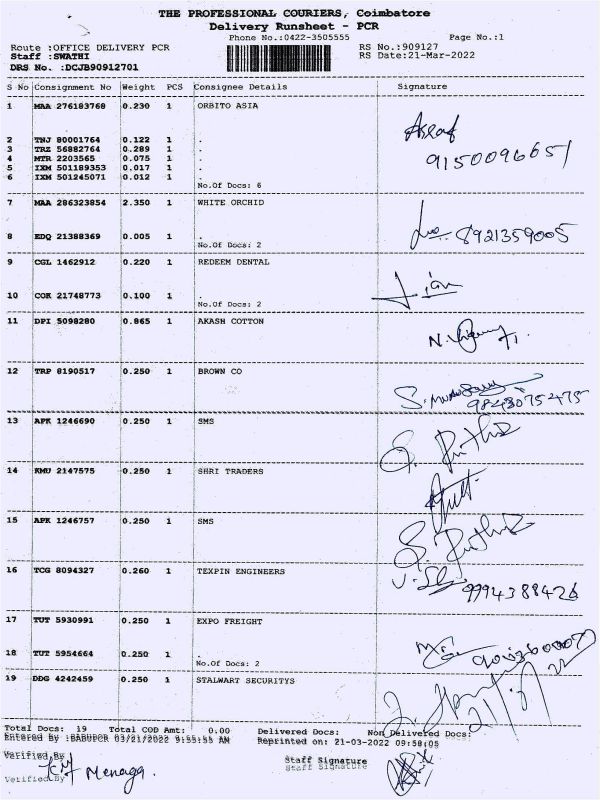 THE PROFESSIONAL COURIERS, Coimbatore
Delivery Runsheet - PCR
Phone No.:0422-3505555 Page No.:1
Route :OFFICE DELIVERY PCR RS No.:909127
Staff :SWATHI RS Date:21-Mar-2022
DRS No. :DCJB90912701
S No Consignment No Weight PCS Consignee Details Signature
1 MAA 276183768 0.230 1 ORBITO ASIA
Asraf
9150096651
2 TNJ 80001764 0.122 1 .
3 TRZ 56882764 0.289 1 .
4 MTR 2203565 0.075 1 .
5 IXM 501189353 0.017 1 .
6 IXM 501245071 0.012 1 .
No.Of Docs: 6
7 MAA 286323854 2.350 1 WHITE ORCHID
8921359005
8 EDQ 21388369 0.005 1 .
No.Of Docs: 2
9 CGL 1462912 0.220 1 REDEEM DENTAL
10 COK 21748773 0.100 1 .
No.Of Docs: 2
11 DPI 5098280 0.865 1 AKASH COTTON
12 TRP 8190517 0.250 1 BROWN CO
9843075475
13 APK 1246690 0.250 1 SMS
14 KMU 2147575 0.250 1 SHRI TRADERS
15 APK 1246757 0.250 1 SMS
16 TCG 8094327 0.260 1 TEXPIN ENGINEERS
9994388426
17 TUT 5930991 0.250 1 EXPO FREIGHT
18 TUT 5954664 0.250 1 .
No.Of Docs: 2
19 DDG 4242459 0.250 1 STALWART SECURITYS
Total Docs: 19 Total COD Amt: 0.00 Delivered Docs: Non Delivered Docs:
Entered By :BABUPCR 03/21/2022 9:55:55 AM Reprinted on: 21-03-2022 09:58:05
Verified By Staff Signature
Verified By Menaga. Staff Signature